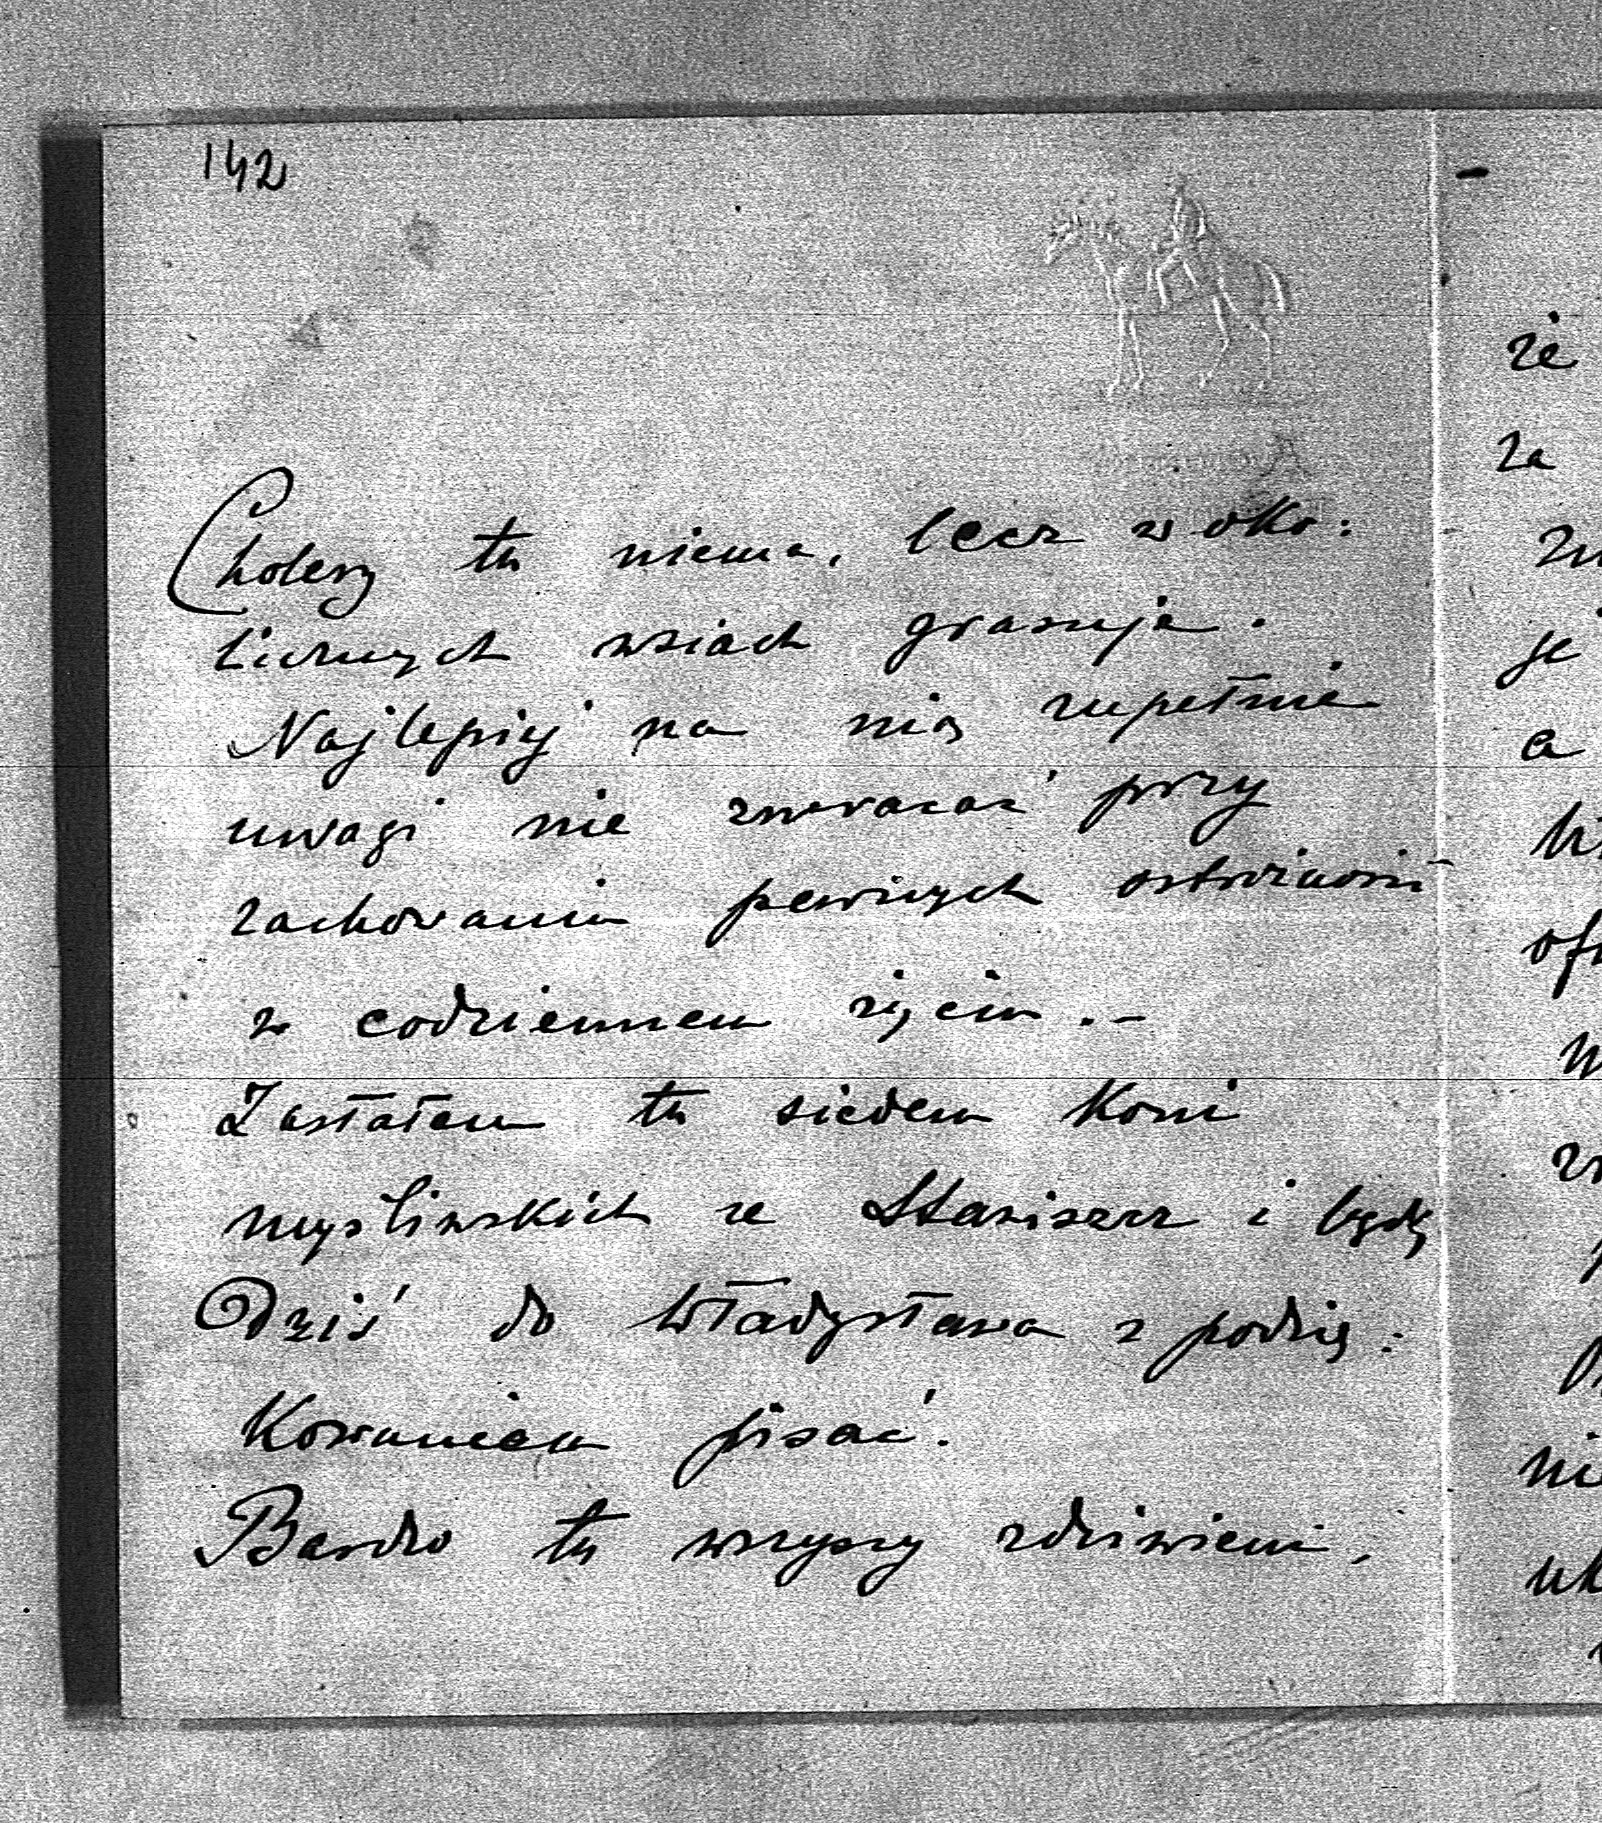 142
Cholery tu niema, lecz w oko:
licznych wsiach grasuje.
Najlepiej na nią zupełnie
uwagi nie zwracać przy
zachowaniu pewnych ostrożności
w codziennem życiu. –
Zastałem tu siedem koni
myśliwskich ze Staviszcz i będę
Dziś do Władysława z podzię:
kowaniem pisać.
Bardzo tu wszyscy zdziwieni,
że
za
je
a